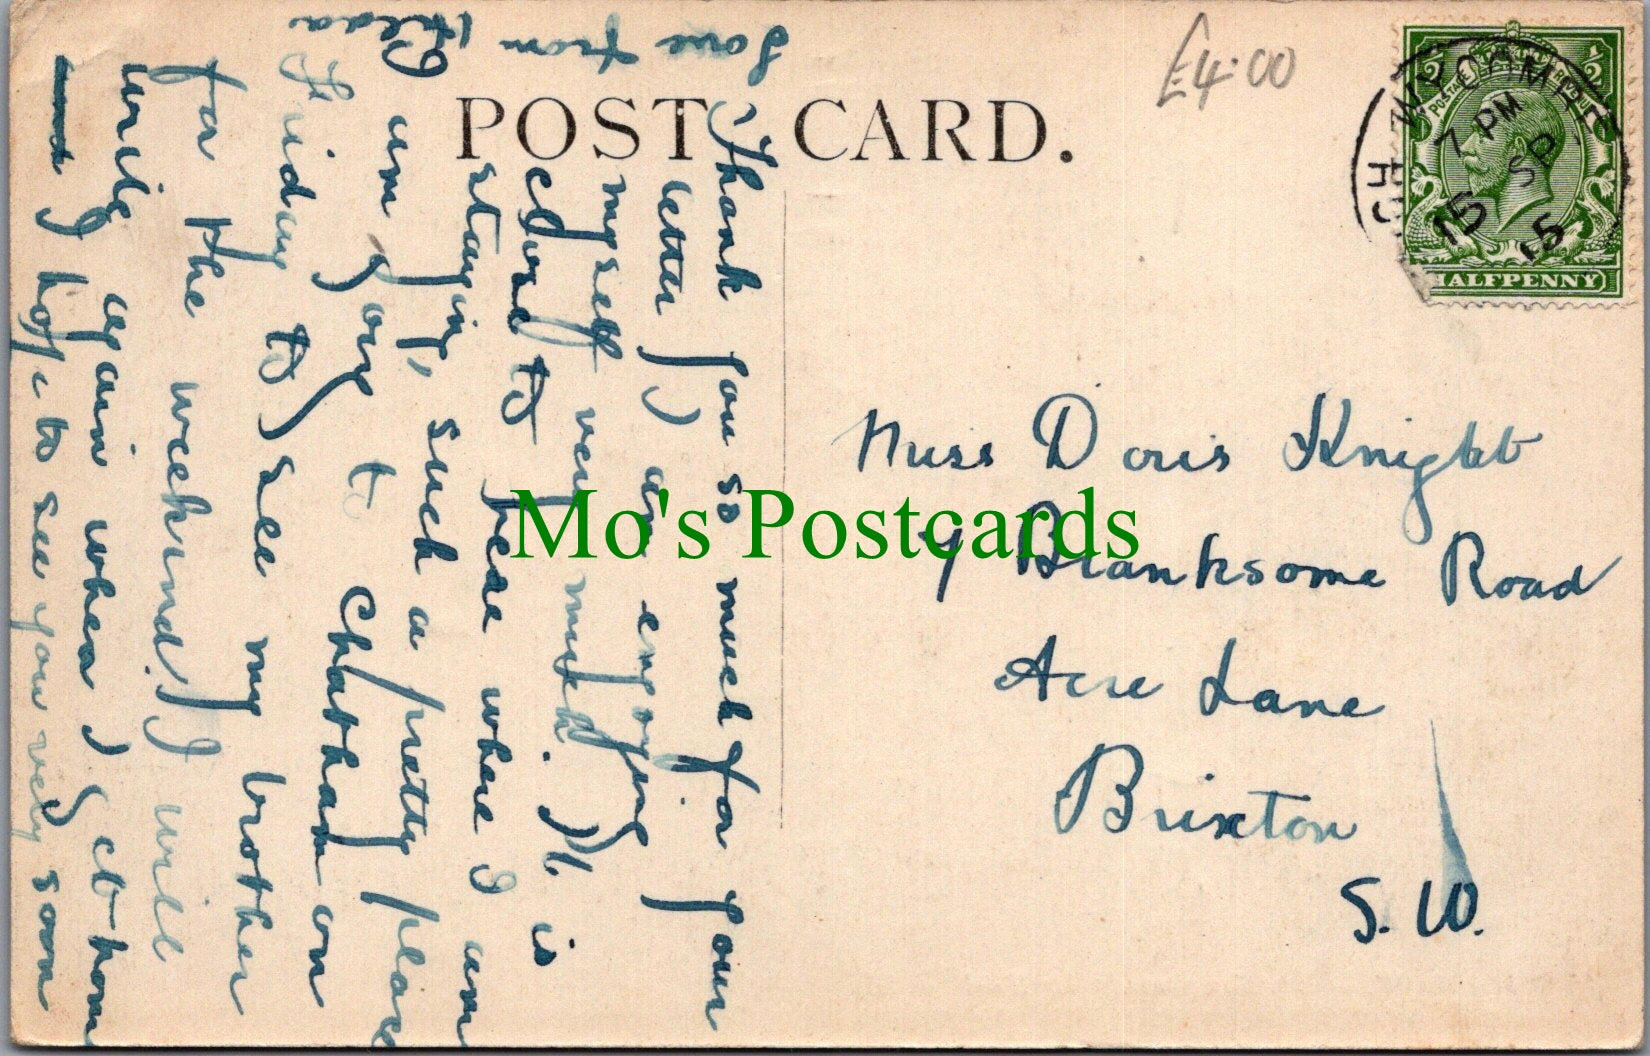 POST CARD.
£4.00
HIGH WYCOMBE
7 PM
15 SP
15
POSTAGE
REVENUE
HALFPENNY
Thank you so much for your
letter I am enjoying
myself very much. It is
close to here where I am
staying, such a pretty place
I am going to Chatham on
Friday to see my brother
for the weekend. I will
write again when I get home
and I hope to see you very soon
Love from
Miss Doris Knight
7 Branksome Road
Acre Lane
Brixton
S.W.
Mo's Postcards